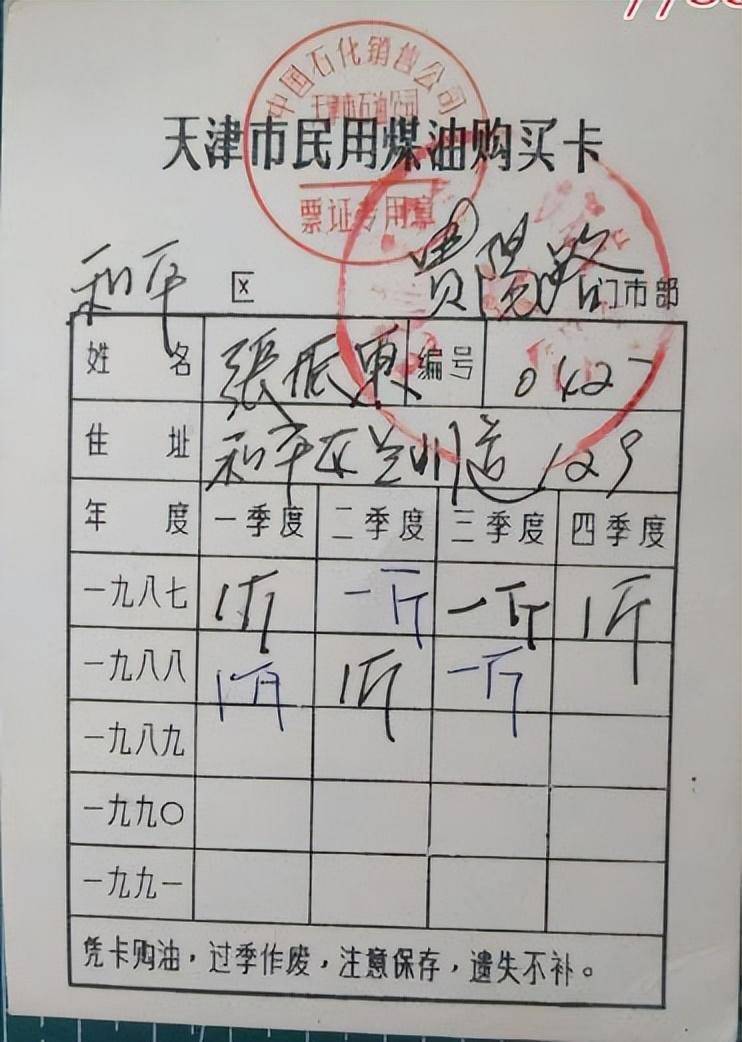 中国石化销售公司
天津市石油公司
天津市民用煤油购买卡
票证专用章
和平 区 貴陽路 门市部
姓名 張振東 编号 0427
住址 和平区兰州道129
年度 一季度 二季度 三季度 四季度
一九八七 1斤 一斤 一斤 1斤
一九八八 1斤 1斤 一斤
一九八九
一九九〇
一九九一
凭卡购油，过季作废，注意保存，遗失不补。